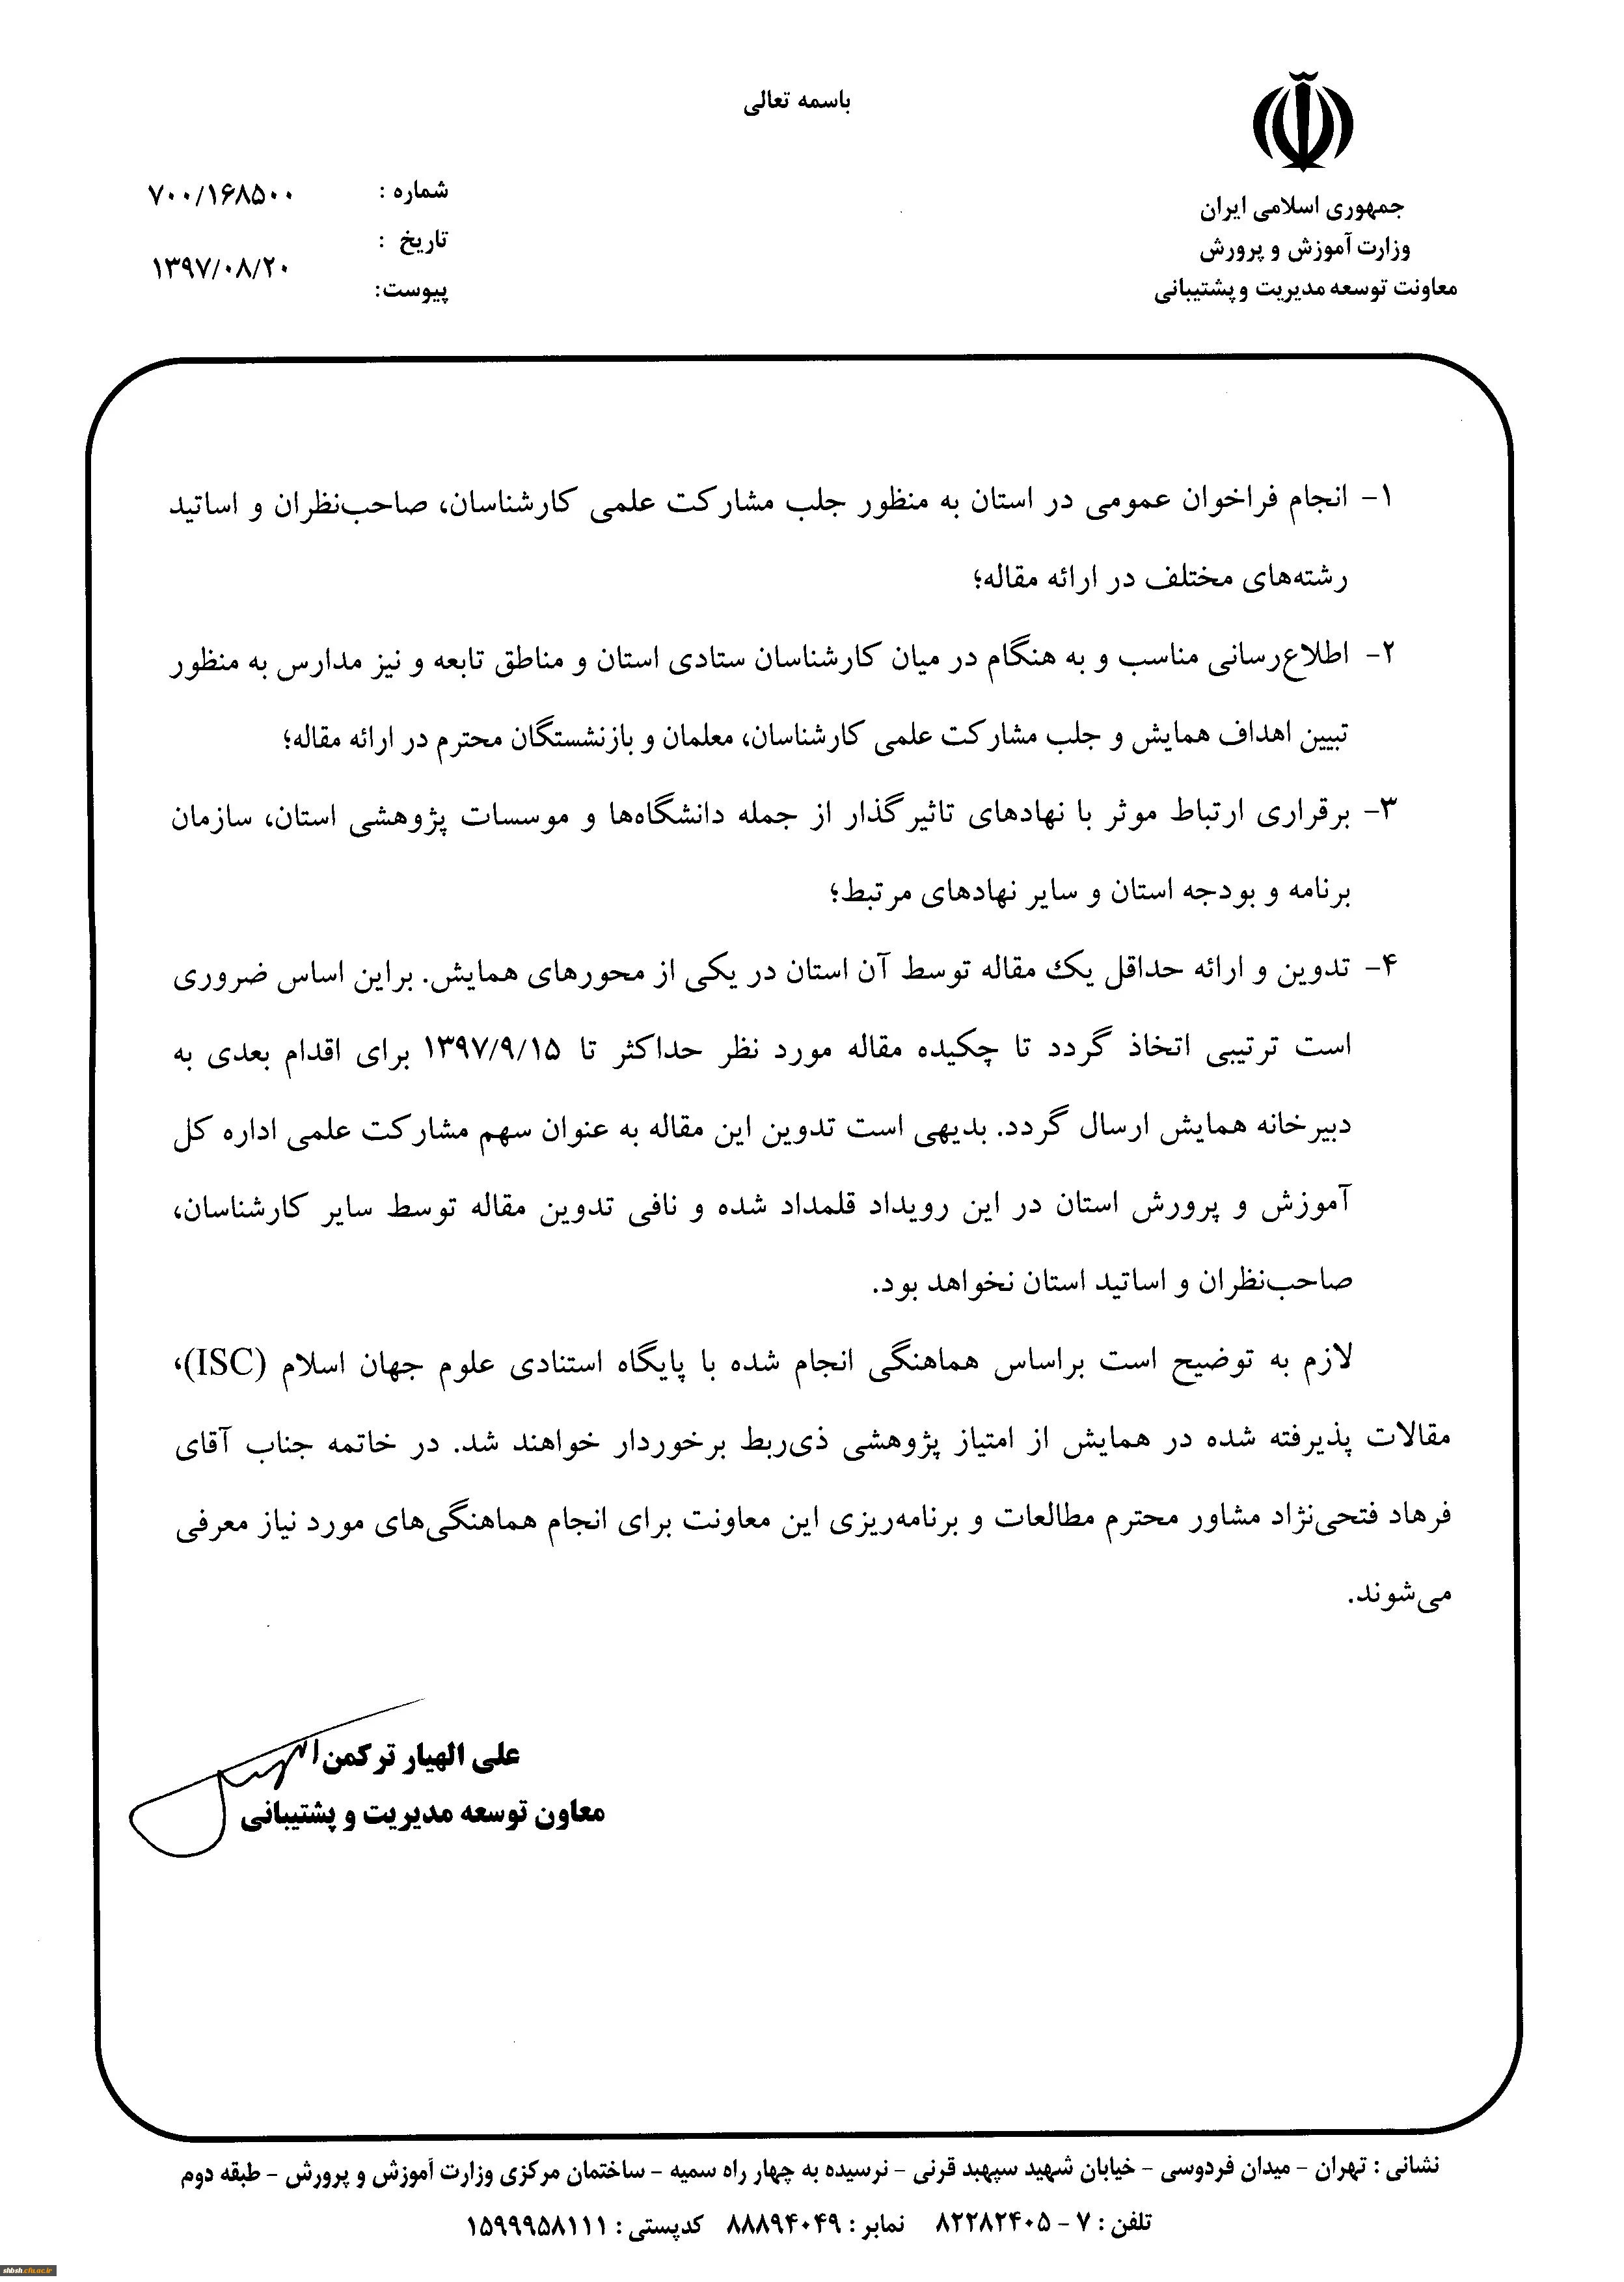 باسمه تعالی
جمهوری اسلامی ایران
وزارت آموزش و پرورش
معاونت توسعه مدیریت و پشتیبانی
شماره : ۷۰۰/۱۶۸۵۰۰
تاریخ : ۱۳۹۷/۰۸/۲۰
پیوست:
۱- انجام فراخوان عمومی در استان به منظور جلب مشارکت علمی کارشناسان، صاحب‌نظران و اساتید
رشته‌های مختلف در ارائه مقاله؛
۲- اطلاع‌رسانی مناسب و به هنگام در میان کارشناسان ستادی استان و مناطق تابعه و نیز مدارس به منظور
تبیین اهداف همایش و جلب مشارکت علمی کارشناسان، معلمان و بازنشستگان محترم در ارائه مقاله؛
۳- برقراری ارتباط موثر با نهادهای تاثیرگذار از جمله دانشگاه‌ها و موسسات پژوهشی استان، سازمان
برنامه و بودجه استان و سایر نهادهای مرتبط؛
۴- تدوین و ارائه حداقل یک مقاله توسط آن استان در یکی از محورهای همایش. براین اساس ضروری
است ترتیبی اتخاذ گردد تا چکیده مقاله مورد نظر حداکثر تا ۱۳۹۷/۹/۱۵ برای اقدام بعدی به
دبیرخانه همایش ارسال گردد. بدیهی است تدوین این مقاله به عنوان سهم مشارکت علمی اداره کل
آموزش و پرورش استان در این رویداد قلمداد شده و نافی تدوین مقاله توسط سایر کارشناسان،
صاحب‌نظران و اساتید استان نخواهد بود.
لازم به توضیح است براساس هماهنگی انجام شده با پایگاه استنادی علوم جهان اسلام (ISC)،
مقالات پذیرفته شده در همایش از امتیاز پژوهشی ذی‌ربط برخوردار خواهند شد. در خاتمه جناب آقای
فرهاد فتحی‌نژاد مشاور محترم مطالعات و برنامه‌ریزی این معاونت برای انجام هماهنگی‌های مورد نیاز معرفی
می‌شوند.
علی الهیار ترکمن
معاون توسعه مدیریت و پشتیبانی
نشانی : تهران - میدان فردوسی - خیابان شهید سپهبد قرنی - نرسیده به چهار راه سمیه - ساختمان مرکزی وزارت آموزش و پرورش - طبقه دوم
تلفن : ۷ - ۸۲۲۸۲۴۰۵ نمابر : ۸۸۸۹۴۰۴۹ کدپستی : ۱۵۹۹۹۵۸۱۱۱
shbsh.cfu.ac.ir